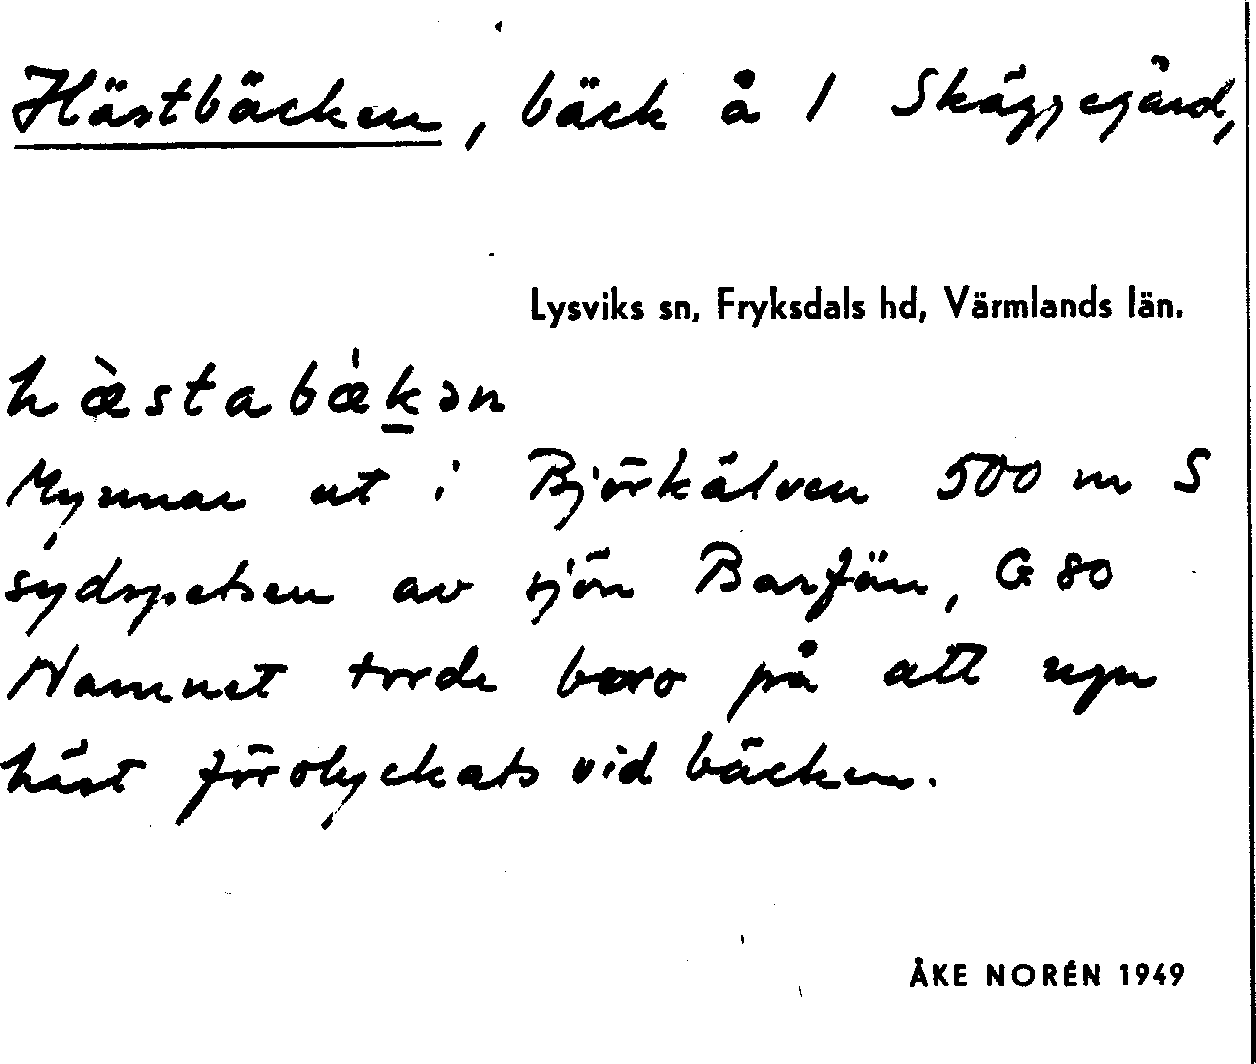 Hästbäcken, bäck å 1 Skäggegård,
Lysviks sn, Fryksdals hd, Värmlands län.
hæ̀stabæ̀k̲ən
Mynnar ut i Björkälven 500 m S
sydspetsen av sjön Barfön, G 80
Namnet torde bero på att ngn
häst förolyckats vid bäcken.
ÅKE NORÉN 1949